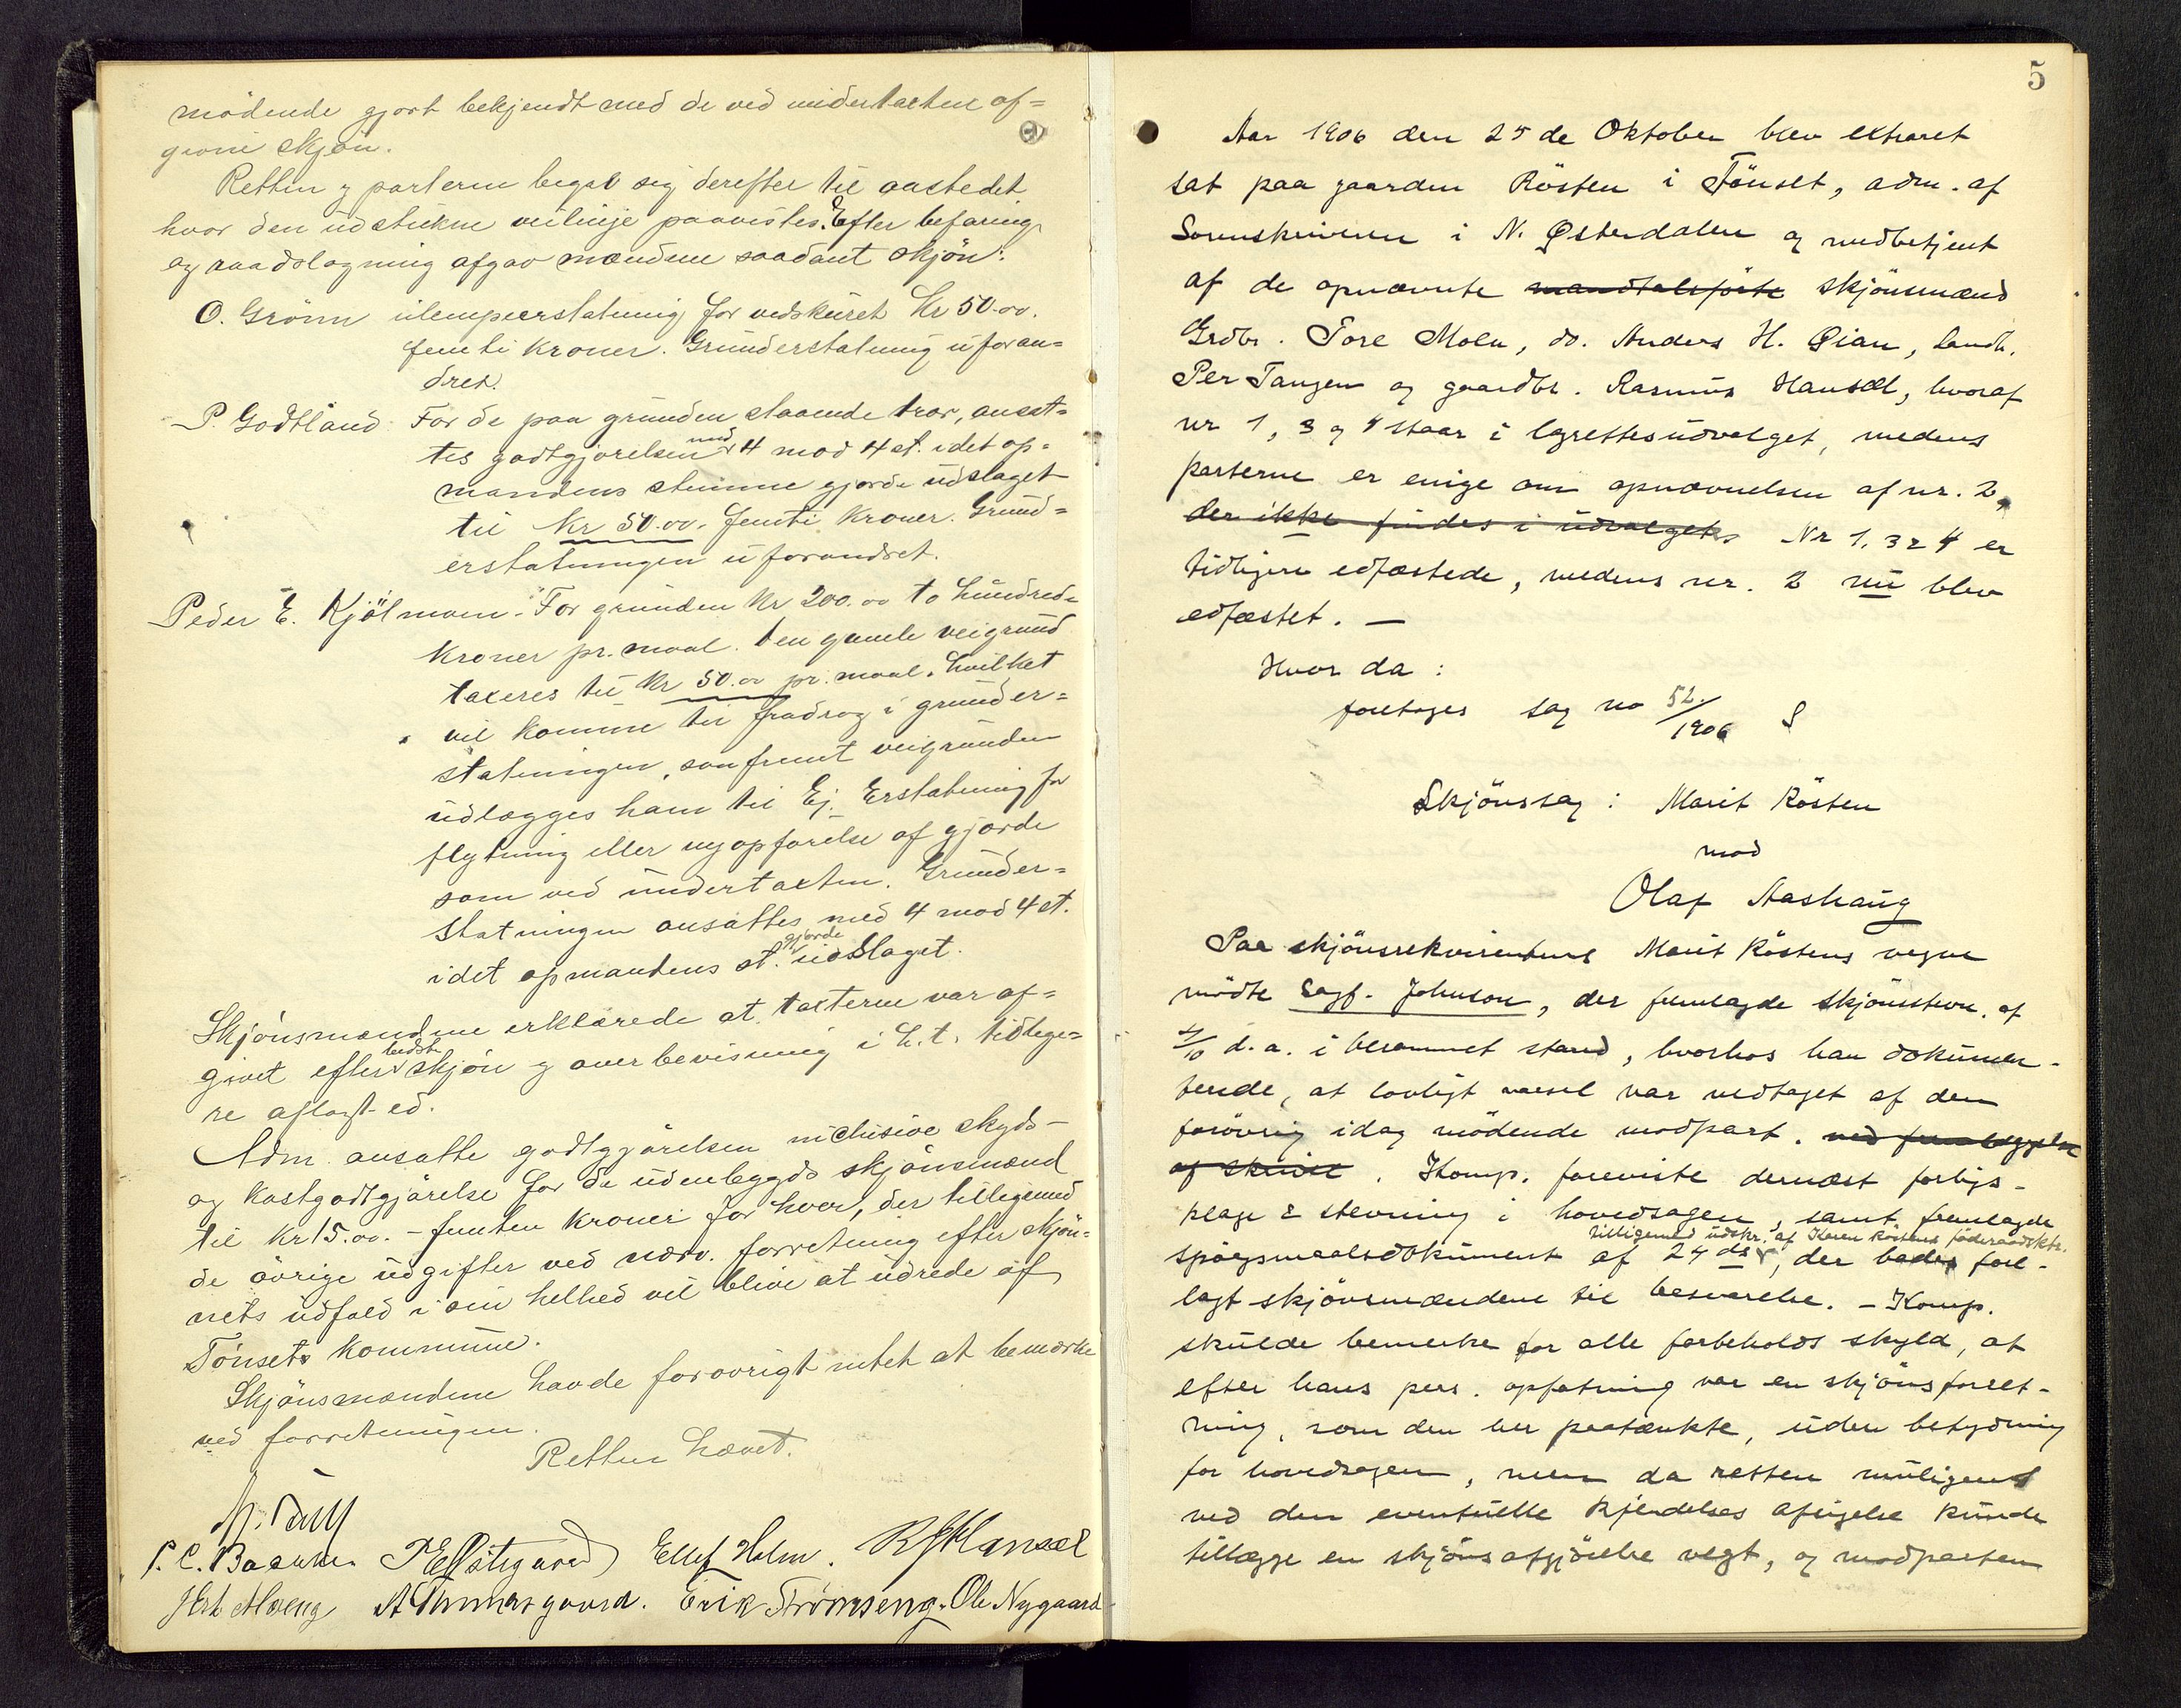 mödende gjort bekjendt med de ved undertaxten af=
givne skjön.
Retten og parterne begav sig derefter til aastedet
hvor den udstukne veilinje paavistes. Efter befaring
og raadslagning afgav mændene saadant skjön:
O. Grönn ulempeerstatning for vedskuret Kr 50.00.
femti kroner. Grunderstatning uforan=
dret.
P. Godtland: For de paa grunden staaende trær, ansat=
tes godtgjörelsen med 4 mod 4 st. idet op=
mandens stemme gjorde udslaget
til Kr 50.00. femti kroner. Grund=
erstatningen uforandret.
Peder E. Kjölmoen. For grunden Kr 200.00 to hundred=
kroner pr. maal. Den gamle veigrund
taxeres til Kr 50.00 pr. maal. hvilket
vil komme til fradrag i grunder=
statningen, saafremt veigrunden
udlægges ham til Ej. Erstatning for
flytning eller nyopförelse af gjærde
som ved undertaxten. Grunder=
statningen ansattes med 4 mod 4 st.
idet opmandens st. gjorde udslaget.
Skjönsmændene erklærede at taxterne var af=
givet efter bedste skjön og overbevisning i h. t. tidlige=
re aflagt ed.
Adm. ansatte godtgjörelsen inclusive skyds-
og kostgodtgjörelse for de udenbygds skjönsmænd
til Kr 15.00. - femten kroner for hver, der tilligemed
de övrige udgifter ved nærv. forretning efter skjön-
nets udfald i sin helhed vil blive at udrede af
Tönsets kommune.
Skjönsmændene havde forövrigt intet at bemærke
ved forretningen.
Retten hævet.
P. C. Baakken P E Östigaard Ellef Holm. R J Hansæl
Hrt Moeng A Tommasgaard. Erik Strömseng. Ole Nygaard
5
Aar 1906 den 25de Oktober blev extraret
sat paa gaarden Rösten i Tönset, adm. af
Sorenskriveren i N. Østerdalen og medbetjent
af de opnævnte mandtalsförte skjönsmænd
Grdbr. Tore Moen, do. Anders H. Øian, landh.
Per Tangen og gaardbr. Rasmus Hansæl, hvoraf
nr 1, 3 og 4 staar i lagrettesudvalget, medens
parterne er enige om opnævnelsen af nr. 2,
der ikke findes i udvalget. Nr 1, 3 & 4 er
tidligere edfæstede, medens nr. 2 nu blev
edfæstet. —
Hvor da:
foretoges sag no 52/1906 S
Skjönssag: Marit Rösten
mod
Olaf Aashaug
Paa skjönsrekvirentens Marit Röstens vegne
mödte Sagf. Johnson, der fremlagde skjönsstevn. af
4/10 d. a. i berammet stand, hvorhos han dokumen-
terede, at lovligt varsel var vedtaget af den
forövrig idag mödende modpart. ved fremlæggelse
af skrivel. Komp. foreviste dernæst forligs-
klage & stevning i hovedsagen, samt fremlagde
spörgsmaalsdokument af 24 ds, tilligemed udskr. af Karen Röstens föderaadskt. der bades fore-
lagt skjönsmændene til besvarelse. — Komp.
skulde bemerke for alle forbeholds skyld, at
efter hans pers. opfatning var en skjönsforret-
ning, som den her paatænkte, uden betydning
for hovedsagen, men da retten muligens
ved den eventuelle kjendelses afsigelse kunde
tillægge en skjönsafgjörelse vegt, og modparten